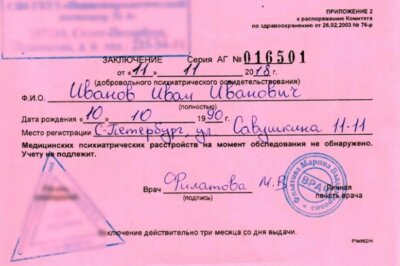 ПРИЛОЖЕНИЕ 2
к распоряжению Комитета
по здравоохранению от 26.02.2003 № 76-р
ЗАКЛЮЧЕНИЕ Серия АГ № 016501
от «11» 11 2018 г.
(добровольного психиатрического освидетельствования)
Ф.И.О. Иванов Иван Иванович
(полностью)
Дата рождения «10» 10 1990 г.
Место регистрации С-Петербург, ул. Савушкина 11-11
Медицинских психиатрических расстройств на момент обследования не обнаружено.
Учету не подлежит.
Врач Филатова М.В.
(подпись)
Личная
печать врача
ВРАЧ
Филатова Марина
Заключение действительно три месяца со дня выдачи.